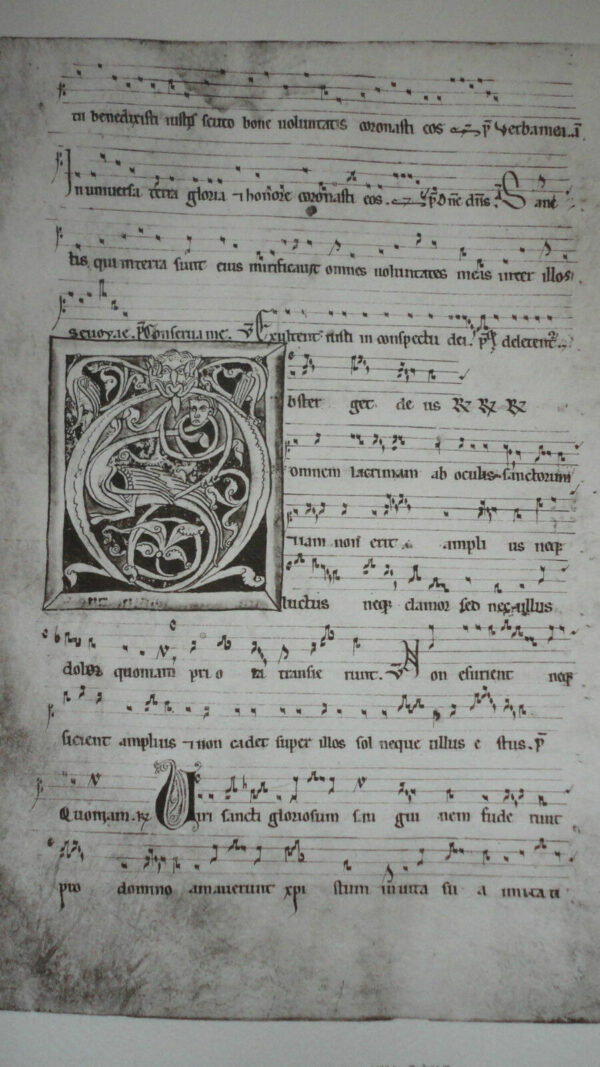 tu benedixisti iustis scuto bone uoluntatis coronasti eos p̄ Verba mea. ī
In uniuersa terra gloria ⁊ honore coronasti eos. p̄ Dn̄e dn̄s. Sanc
tis, qui in terra sunt eius mirificauit omnes uoluntates meas inter illos
seuouae. p̄ Conserua me. V Exultent iusti in conspectu dei. p̄
bster get de us
omnem lacrimam ab oculis sanctorum
iam non erit ampli us neqꝫ
luctus neqꝫ clamor sed nec ullus
dolor quoniam pri o ra transie runt. V Non esurient neqꝫ
sicient amplius ⁊ non cadet super illos sol neque ullus e stus. p̄
Quoniam. Uiri sancti gloriosum san gui nem fude runt
pro domino amauerunt xpi stum in uita su a